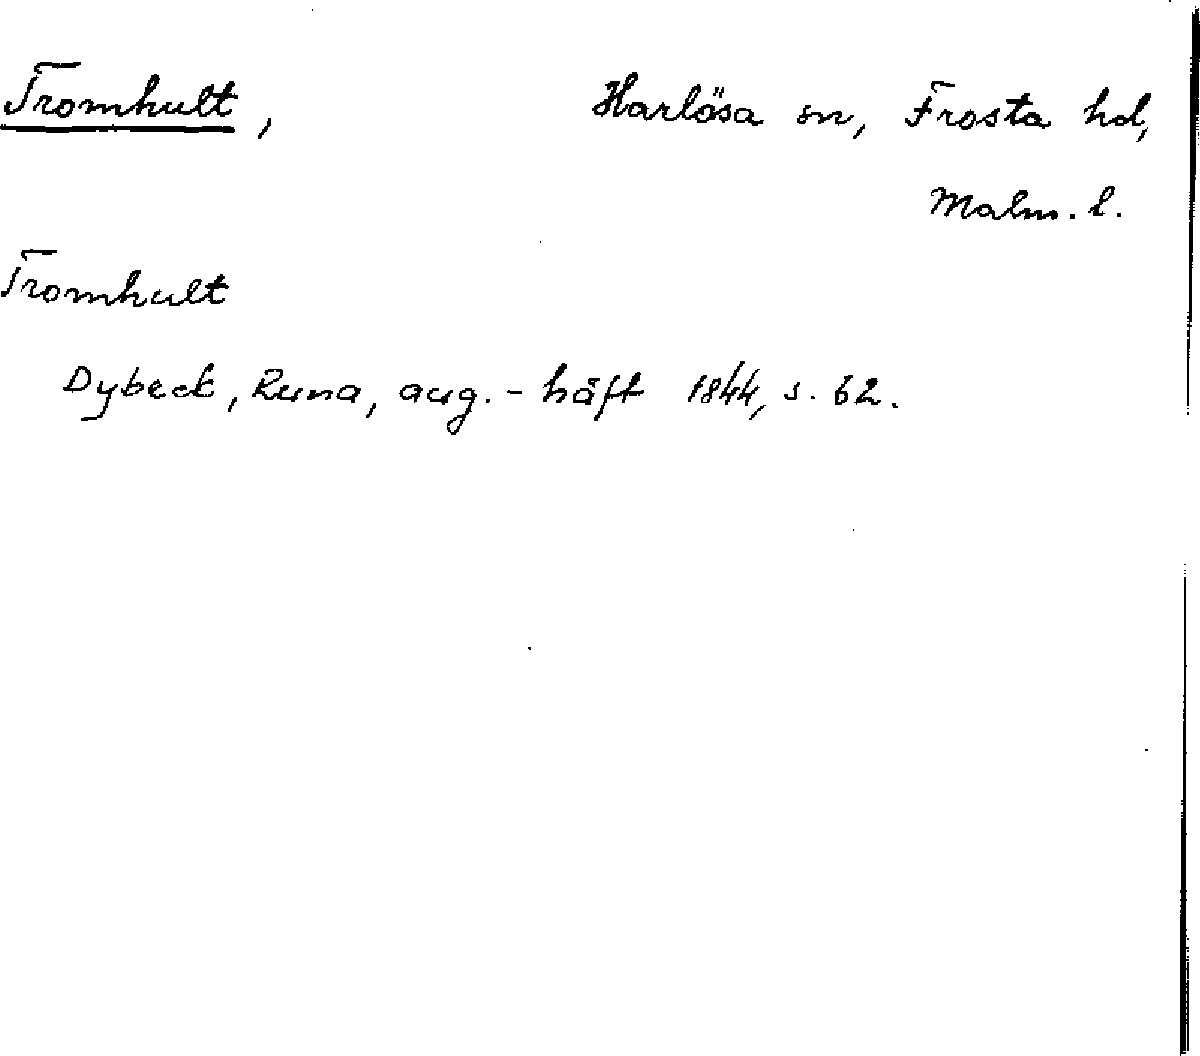 Tromhult, Harlösa sn, Frosta hd,
Malm. l.
Tromhult
Dybeck, Runa, aug.-häft 1844, s. 62.